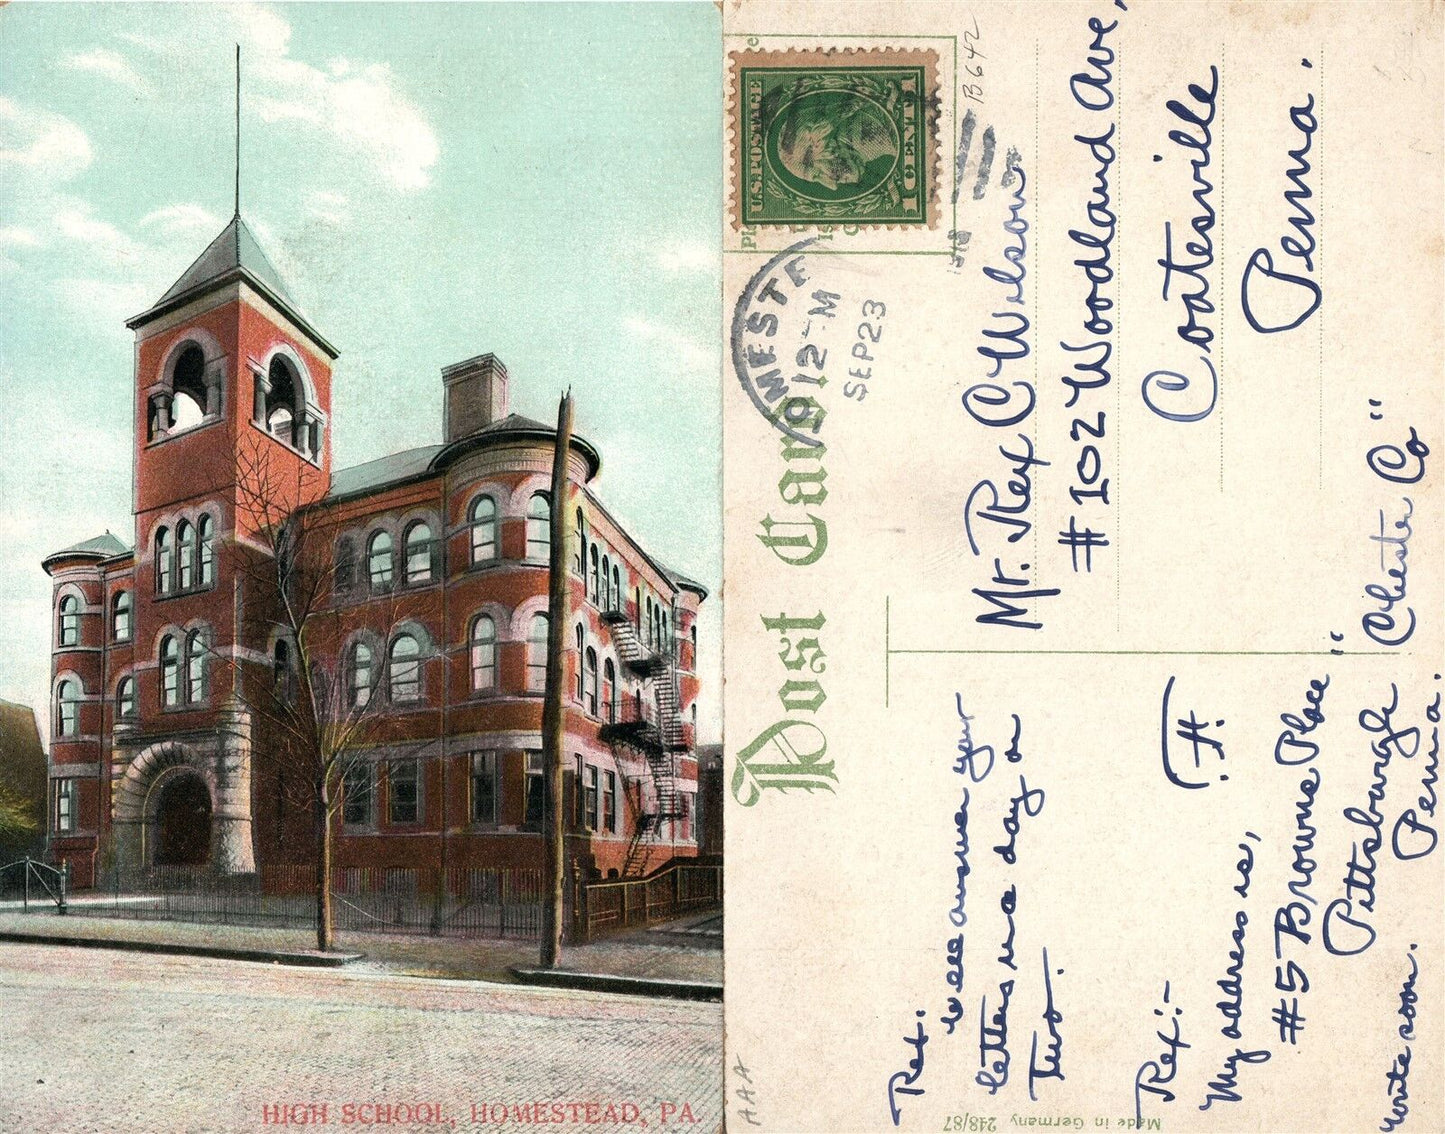 HIGH SCHOOL, HOMESTEAD, PA.
Post Card
U.S. POSTAGE
1 CENT 1
B642
12-M
SEP 23
Mr. Rex C Wilson
#102 Woodland Ave,
Coatesville
Penna.
"Chester Co"
Rex.
will answer your
letters in a day or
two.
H.
Rex:-
My address is,
#5 Browns Place"
Pittsburgh
Penna.
write soon.
AAA
Made in Germany 248/87